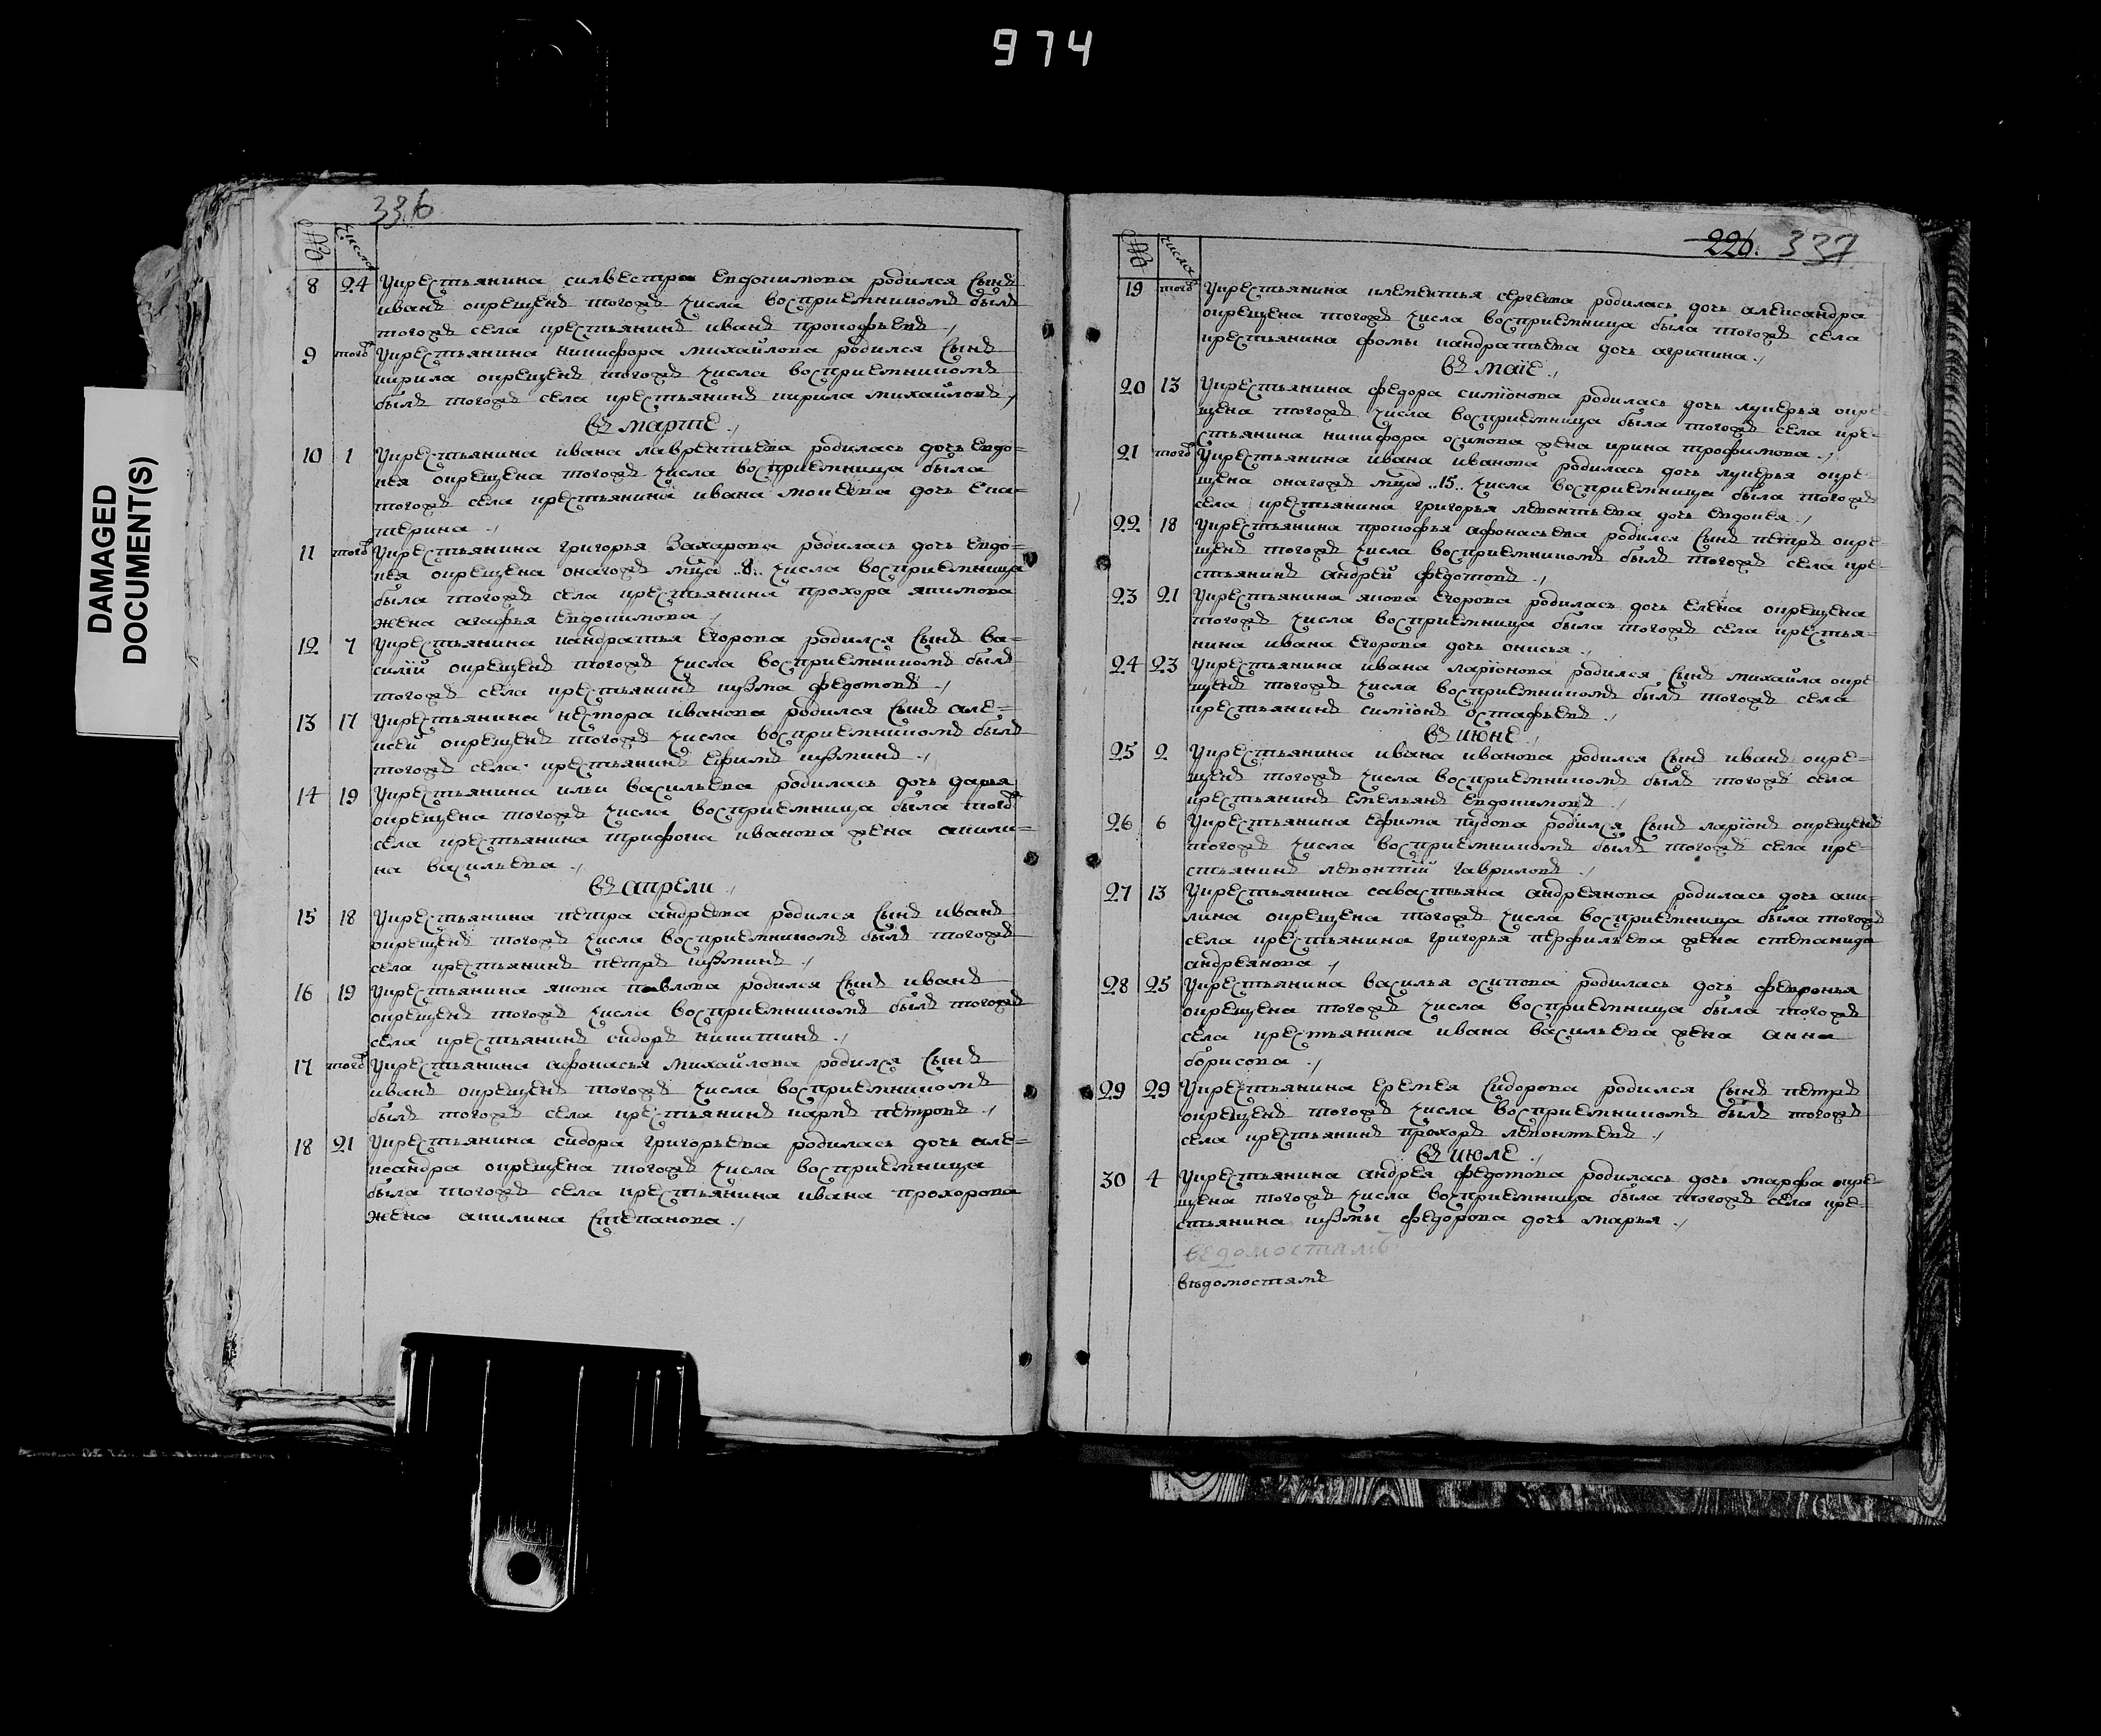 974
DAMAGED
DOCUMENT(S)
336
№ числа
8 24 Укрестьянина силвестра Евдокимова родился сынъ
иванъ окрещенъ тогожъ числа восприемникомъ былъ
тогожъ села крестьянинъ иванъ прокофьевъ ./
9 тогожъ Укрестьянина никифора михайлова родился сынъ
кирила окрещенъ тогожъ числа восприемникомъ
былъ тогожъ села крестьянинъ кирила михайловъ ./
въ марте ./
10 1 Укрестьянина ивана лаврентьева родилась дочь Евдо=
кея окрещена тогожъ числа восприемница была
тогожъ села крестьянина ивана мокеева дочь Ека=
терина ./
11 тогожъ Укрестьянина григорья Захарова родилась дочь Евдо=
кея окрещена онагожъ мца ..8.. числа восприемница
была тогожъ села крестьянина прохора якимова
жена агафья Евдокимова ./
12 7 Укрестьянина кандратья Егорова родился сынъ ва=
силій окрещенъ тогожъ числа восприемникомъ былъ
тогожъ села крестьянинъ кузма федотовъ ./
13 17 Укрестьянина нестора иванова родился сынъ але=
ксей окрещенъ тогожъ числа восприемникомъ былъ
тогожъ села крестьянинъ Ефимъ кузминъ ./
14 19 Укрестьянина ильи васильева родилась дочь дарья
окрещена тогожъ числа восприемница была тогожъ
села крестьянина трифона иванова жена акили=
на васильева ./
въ апрели ./
15 18 Укрестьянина петра андреева родился сынъ иванъ
окрещенъ тогожъ числа восприемникомъ былъ тогожъ
села крестьянинъ петръ кузминъ ./
16 19 Укрестьянина якова павлова родился сынъ иванъ
окрещенъ тогожъ числа восприемникомъ былъ тогожъ
села крестьянинъ сидоръ никитинъ ./
17 тогожъ Укрестьянина афонасья михайлова родился сынъ
иванъ окрещенъ тогожъ числа восприемникомъ
былъ тогожъ села крестьянинъ карпъ петровъ ./
18 21 Укрестьянина сидора григорьева родилась дочь але=
ксандра окрещена тогожъ числа восприемница
была тогожъ села крестьянина ивана прохорова
жена акилина степанова ./
226. 337
№ числа
19 тогожъ Укрестьянина клементья сергеева родилась дочь александра
окрещена тогожъ числа восприемница была тогожъ села
крестьянина фомы кандратьева дочь агрипина ./
въ маіе ./
20 13 Укрестьянина федора симіонова родилась дочь лукерья окре=
щена тогожъ числа восприемница была тогожъ села кре=
стьянина никифора осипова жена ирина трофимова ./
21 тогожъ Укрестьянина ивана иванова родилась дочь лукерья окре=
щена онагожъ мца ..15.. числа восприемница была тогожъ
села крестьянина григорья левонтьева дочь евдокея ./
22 18 Укрестьянина прокофья афонасьева родился сынъ петръ окре=
щенъ тогожъ числа восприемникомъ былъ тогожъ села кре=
стьянинъ андрей федотовъ ./
23 21 Укрестьянина якова Егорова родилась дочь елена окрещена
тогожъ числа восприемница была тогожъ села крестья=
нина ивана Егорова дочь онисья ./
24 23 Укрестьянина ивана ларіонова родился сынъ михайла окре=
щенъ тогожъ числа восприемникомъ былъ тогожъ села
крестьянинъ симіонъ остафьевъ ./
въ июне ./
25 2 Укрестьянина ивана иванова родился сынъ иванъ окре=
щенъ тогожъ числа восприемникомъ былъ тогожъ села
крестьянинъ Емельянъ Евдокимовъ ./
26 6 Укрестьянина Ефима нудова родился сынъ ларіонъ окрещенъ
тогожъ числа восприемникомъ былъ тогожъ села кре=
стьянинъ левонтій гавриловъ ./
27 13 Укрестьянина савастьяна андреянова родилась дочь аки=
лина окрещена тогожъ числа восприемница была тогожъ
села крестьянина григорья перфильева жена степанида
андреянова ./
28 25 Укрестьянина василья осипова родилась дочь февронья
окрещена тогожъ числа восприемница была тогожъ
села крестьянина ивана васильева жена анна
борисова ./
29 29 Укрестьянина еремея сидорова родился сынъ петръ
окрещенъ тогожъ числа восприемникомъ былъ тогожъ
села крестьянинъ прохоръ левонтьевъ ./
въ июле ./
30 4 Укрестьянина андрея федотова родилась дочь марфа окре=
щена тогожъ числа восприемница была тогожъ села кре=
стьянина кузмы федорова дочь марья ./
ведомостямъ
вѣдомостямъ